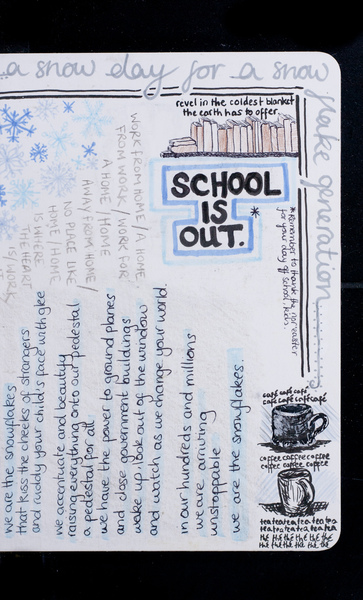 a snow day for a snow
flake generation
revel in the coldest blanket
the earth has to offer.
SCHOOL
IS
OUT.
*
*Remember to thank the nor'easter
for your day off school, kids.
WORK FROM HOME / A HOME
FROM WORK / WORK FOR
A HOME / HOME
AWAY FROM HOME /
NO PLACE LIKE
HOME / HOME
IS WHERE
THE HEART
IS / WORK
we are the snowflakes
that kiss the cheeks of strangers
and ruddy your child's face with glee
we accentuate and beautify
raising everything onto our pedestal
a pedestal for all
we have the power to ground planes
and close government buildings
wake up / look out of the window
and watch as we change your world.
in our hundreds and millions
we are arriving
unstoppable
we are the snowflakes.
café café café
café café café café
coffee coffee coffee
coffee coffee coffee
tea tea tea tea tea tea
tea tea tea tea tea tea
thé thé thé thé thé thé
thé thé thé thé thé thé